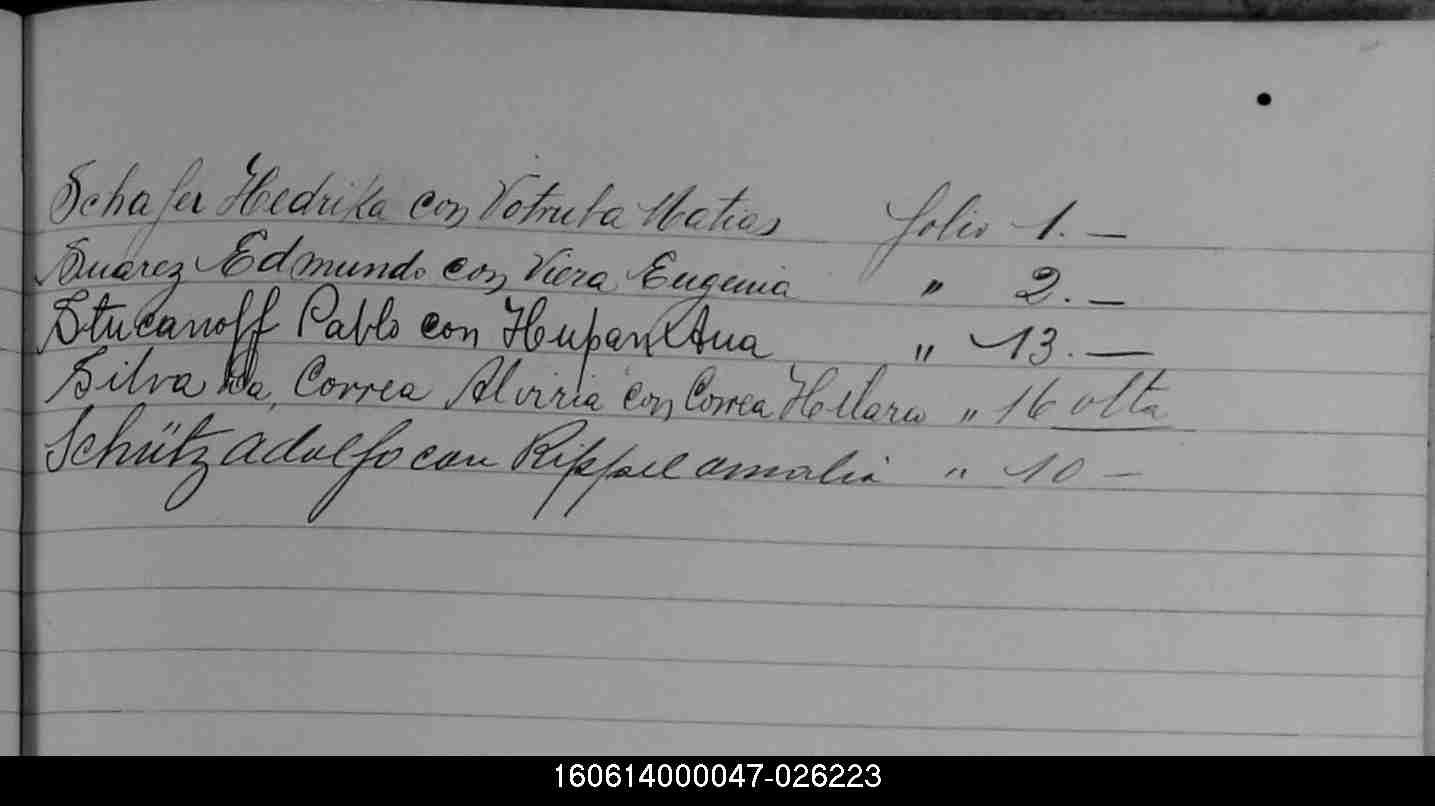 Schafer Hedrika con Votruba Matias folio 1. —
Suarez Edmundo con Viera Eugenia " 2. —
Stucanoff Pablo con Hupan Ana " 13. —
Silva da, Correa Alviria con Correa Hilario " 16 vlta
Schütz Adolfo con Rippel Amalia " 10 —
160614000047-026223